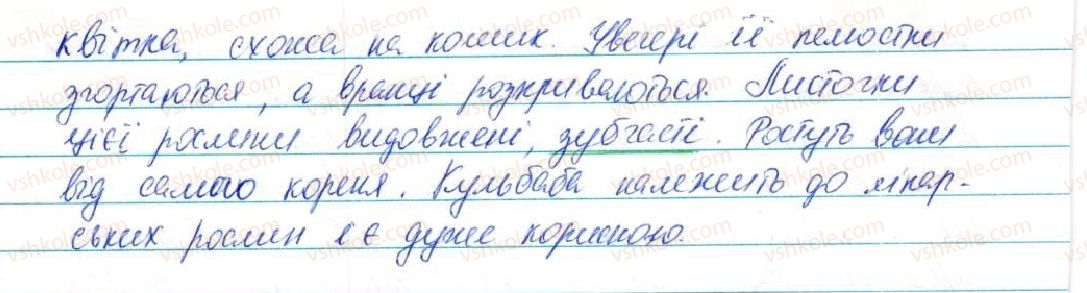 квітка, схожа на кошик. Увечері її пелюстки
згортаються, а вранці розкриваються. Листочки
цієї рослини видовжені, зубчасті. Ростуть вони
від самого кореня. Кульбаба належить до лікар-
ських рослин і є дуже корисною.